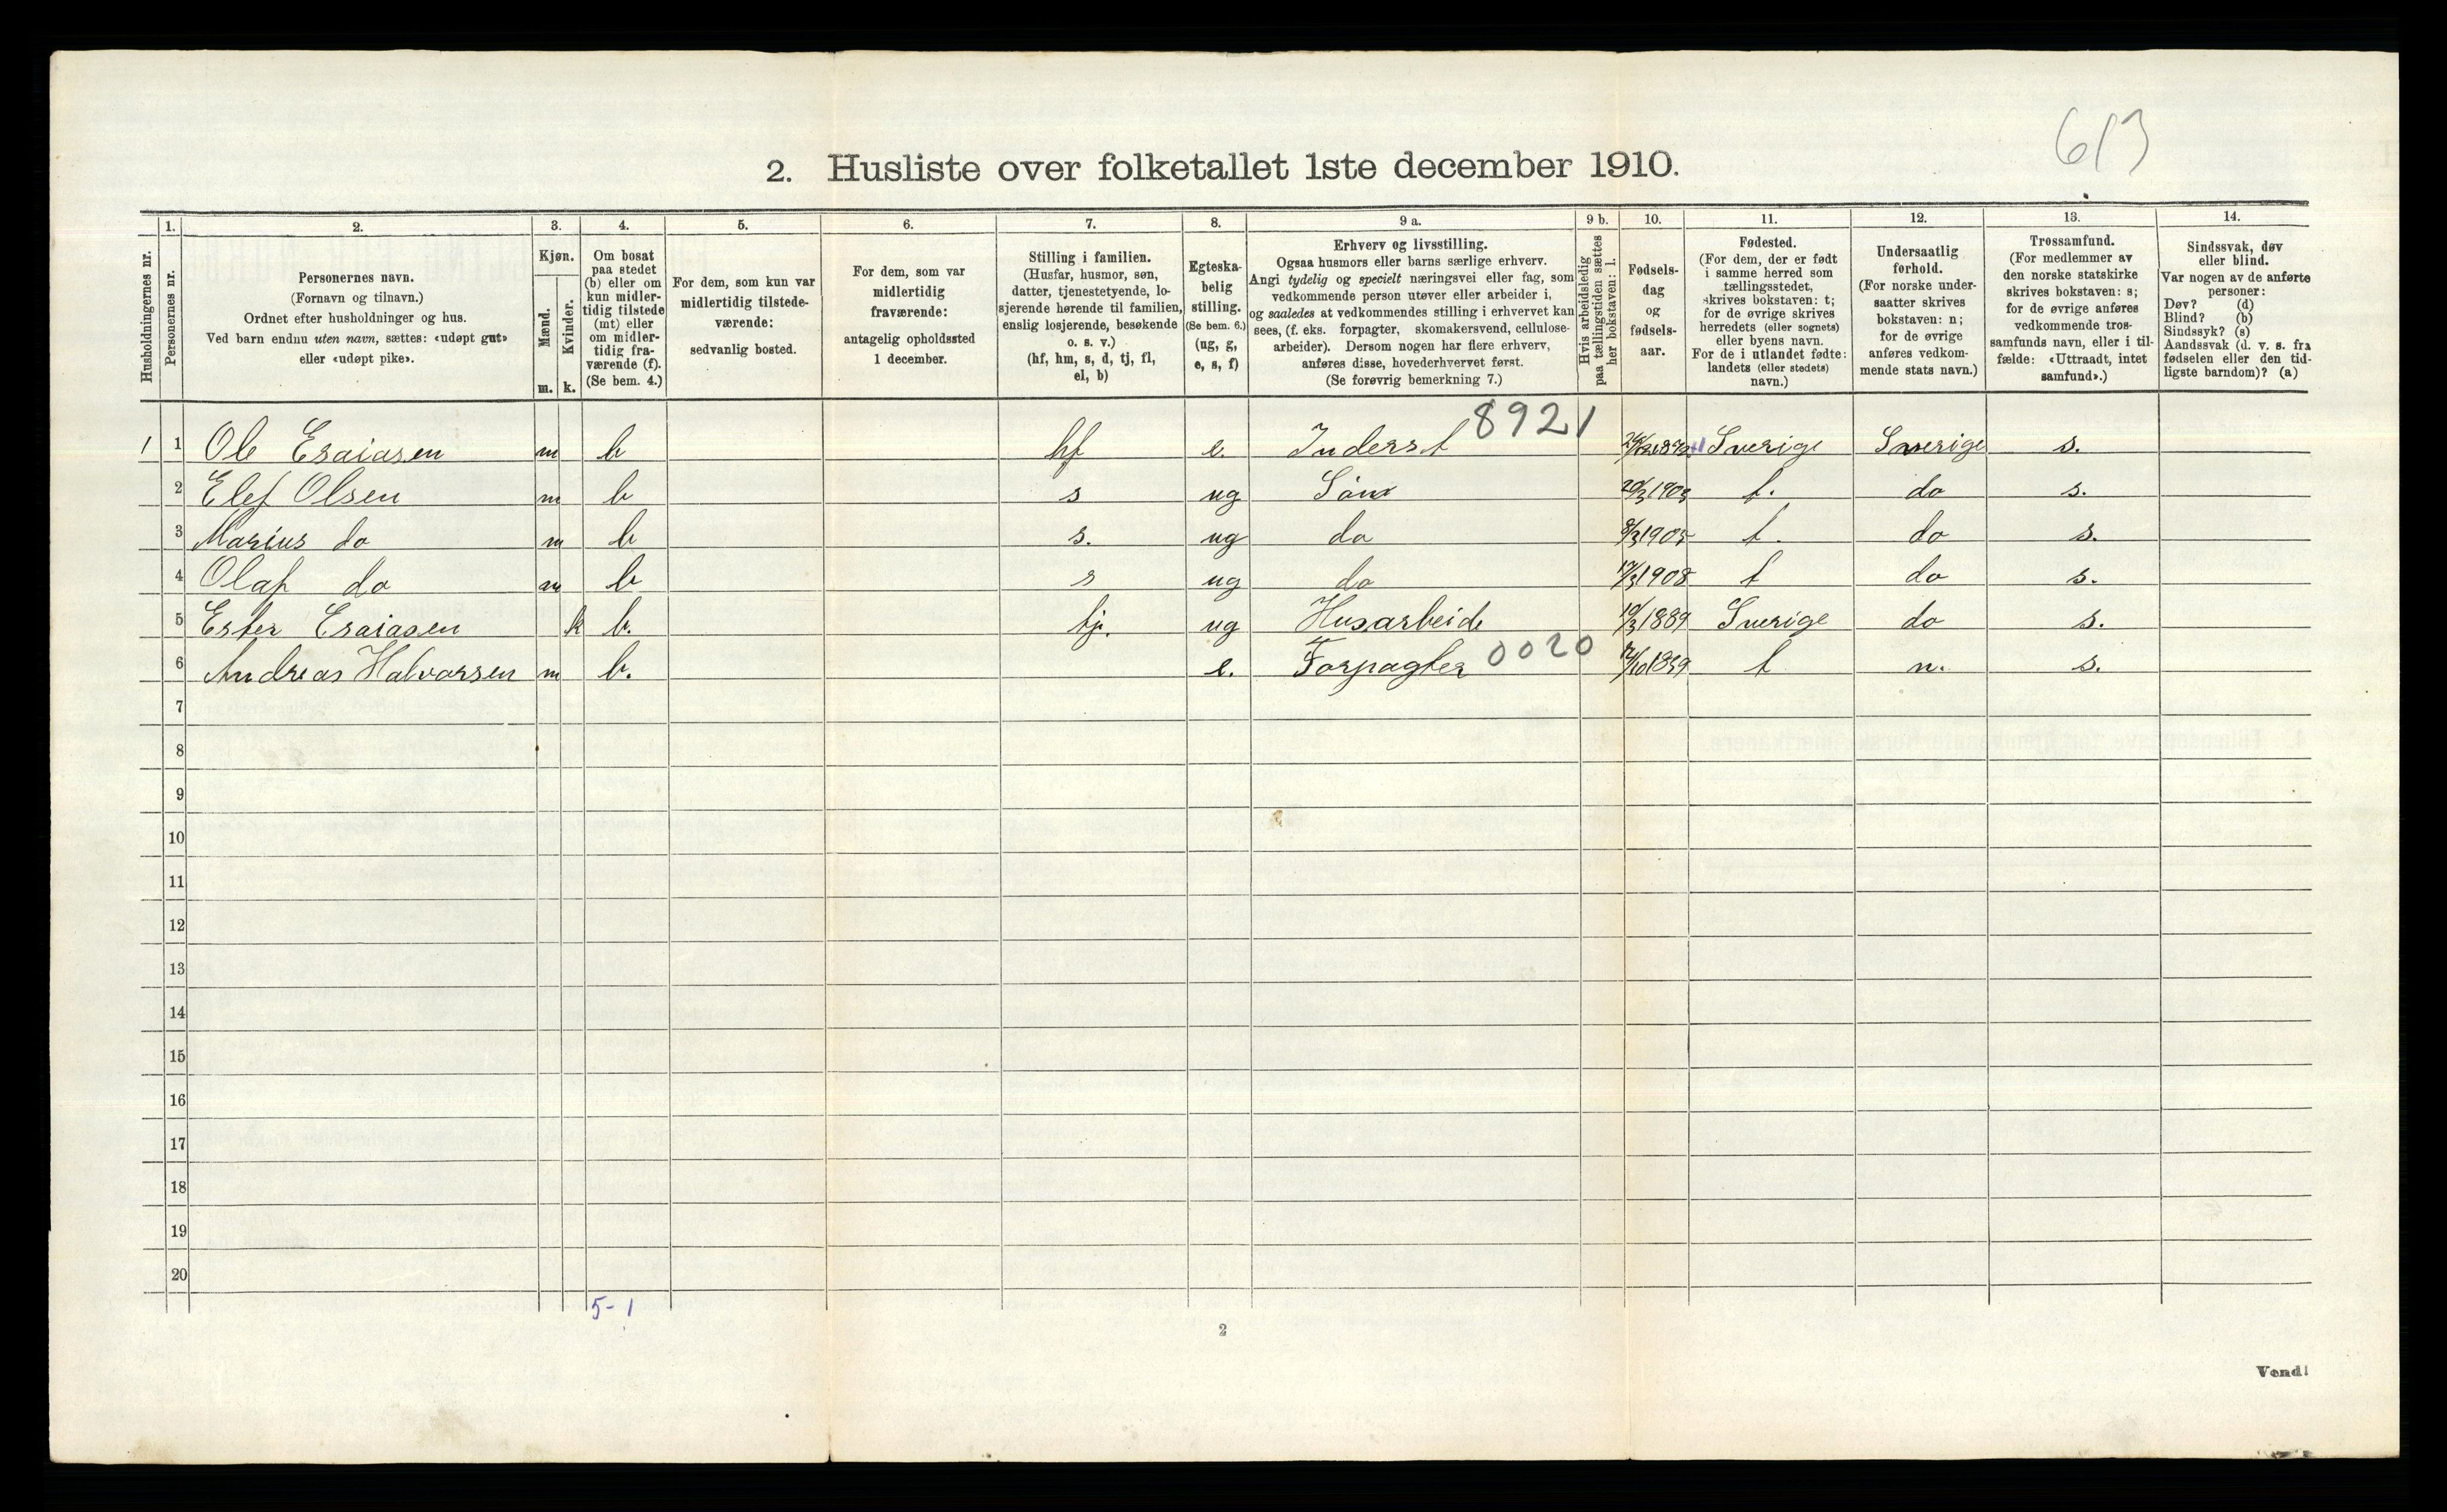 613
2. Husliste over folketallet 1ste december 1910.
Husholdningernes nr.
1. Personernes nr.
2. Personernes navn.
(Fornavn og tilnavn.)
Ordnet efter husholdninger og hus.
Ved barn endnu uten navn, sættes: «udøpt gut»
eller «udøpt pike».
3. Kjøn.
Mænd. m.
Kvinder. k.
4. Om bosat
paa stedet
(b) eller om
kun midler-
tidig tilstede
(mt) eller
om midler-
tidig fra-
værende (f).
(Se bem. 4.)
5. For dem, som kun var
midlertidig tilstede-
værende:
sedvanlig bosted.
6. For dem, som var
midlertidig
fraværende:
antagelig opholdssted
1 december.
7. Stilling i familien.
(Husfar, husmor, søn,
datter, tjenestetyende, lo-
sjerende hørende til familien,
enslig losjerende, besøkende
o. s. v.)
(hf, hm, s, d, tj, fl,
el, b)
8. Egteska-
belig
stilling.
(Se bem. 6.)
(ug, g,
e, s, f)
9 a. Erhverv og livsstilling.
Ogsaa husmors eller barns særlige erhverv.
Angi tydelig og specielt næringsvei eller fag, som
vedkommende person utøver eller arbeider i,
og saaledes at vedkommendes stilling i erhvervet kan
sees, (f. eks. forpagter, skomakersvend, cellulose-
arbeider). Dersom nogen har flere erhverv,
anføres disse, hovederhvervet først.
(Se forøvrig bemerkning 7.)
9 b. Hvis arbeidsledig
paa tællingstiden sættes
her bokstaven: l.
10. Fødsels-
dag
og
fødsels-
aar.
11. Fødested.
(For dem, der er født
i samme herred som
tællingsstedet,
skrives bokstaven: t;
for de øvrige skrives
herredets (eller sognets)
eller byens navn.
For de i utlandet fødte:
landets (eller stedets)
navn.)
12. Undersaatlig
forhold.
(For norske under-
saatter skrives
bokstaven: n;
for de øvrige
anføres vedkom-
mende stats navn.)
13. Trossamfund.
(For medlemmer av
den norske statskirke
skrives bokstaven: s;
for de øvrige anføres
vedkommende tros-
samfunds navn, eller i til-
fælde: «Uttraadt, intet
samfund».)
14. Sindssvak, døv
eller blind.
Var nogen av de anførte
personer:
Døv? (d)
Blind? (b)
Sindssyk? (s)
Aandssvak (d. v. s. fra
fødselen eller den tid-
ligste barndom)? (a)
8921
1 1 Ole Esaiasen m b hf e. Inderst Sverige Sverige s.
2 Elef Olsen m b s ug Søn t. do s.
3 Marius do m b s. ug do 8/3 1905 t. do s.
4 Olaf do m b s ug do 17/3 1908 t do s.
5 Ester Esaiasen k b. tj. ug Husarbeide 19/3 1889 Sverige do s.
6 Andreas Halvorsen m b. e. Forpagter 0020 t n. s.
7
8
9
10
11
12
13
14
15
16
17
18
19
20
5-1
2
Vend!